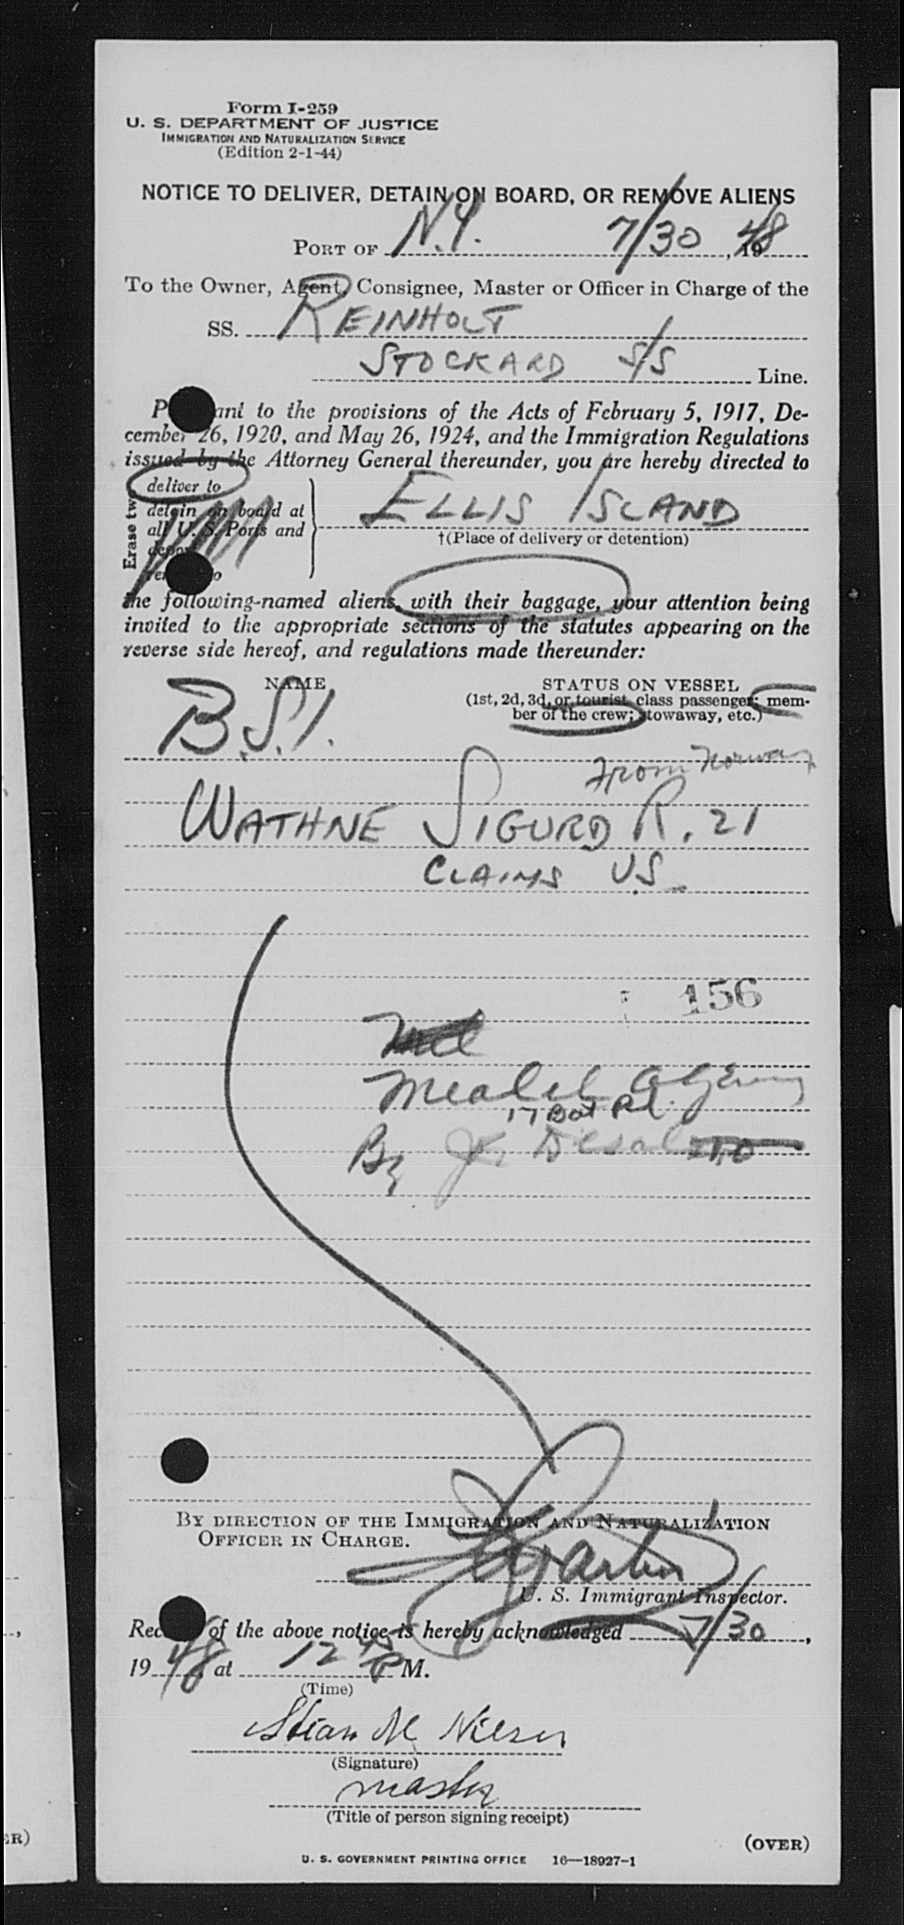 Form I-259
U. S. DEPARTMENT OF JUSTICE
IMMIGRATION AND NATURALIZATION SERVICE
(Edition 2-1-44)
NOTICE TO DELIVER, DETAIN ON BOARD, OR REMOVE ALIENS
PORT OF N.Y. 7/30, 1948
To the Owner, Agent, Consignee, Master or Officer in Charge of the
SS. REINHOLT
STOCKARD S/S Line.
to the provisions of the Acts of February 5, 1917, De-
cember 26, 1920, and May 26, 1924, and the Immigration Regulations
issued by the Attorney General thereunder, you are hereby directed to
Erase two
deliver to
detain on board at
all U. S. Ports and
ELLIS ISLAND
†(Place of delivery or detention)
the following-named aliens, with their baggage, your attention being
invited to the appropriate sections of the statutes appearing on the
reverse side hereof, and regulations made thereunder:
NAME
STATUS ON VESSEL
(1st, 2d, 3d, or tourist class passenger; mem-
ber of the crew; stowaway, etc.)
B.S.I.
From Norway
WATHNE SIGURD R. 21
CLAIMS US
156
17 Bat Pl.
By
BY DIRECTION OF THE IMMIGRATION AND NATURALIZATION
OFFICER IN CHARGE.
U. S. Immigrant Inspector.
of the above notice is hereby acknowledged 7/30,
1948 at 12 P M.
(Time)
Stian M. Nilsen
(Signature)
master
(Title of person signing receipt)
(OVER)
U. S. GOVERNMENT PRINTING OFFICE 16—18927-1
ER)